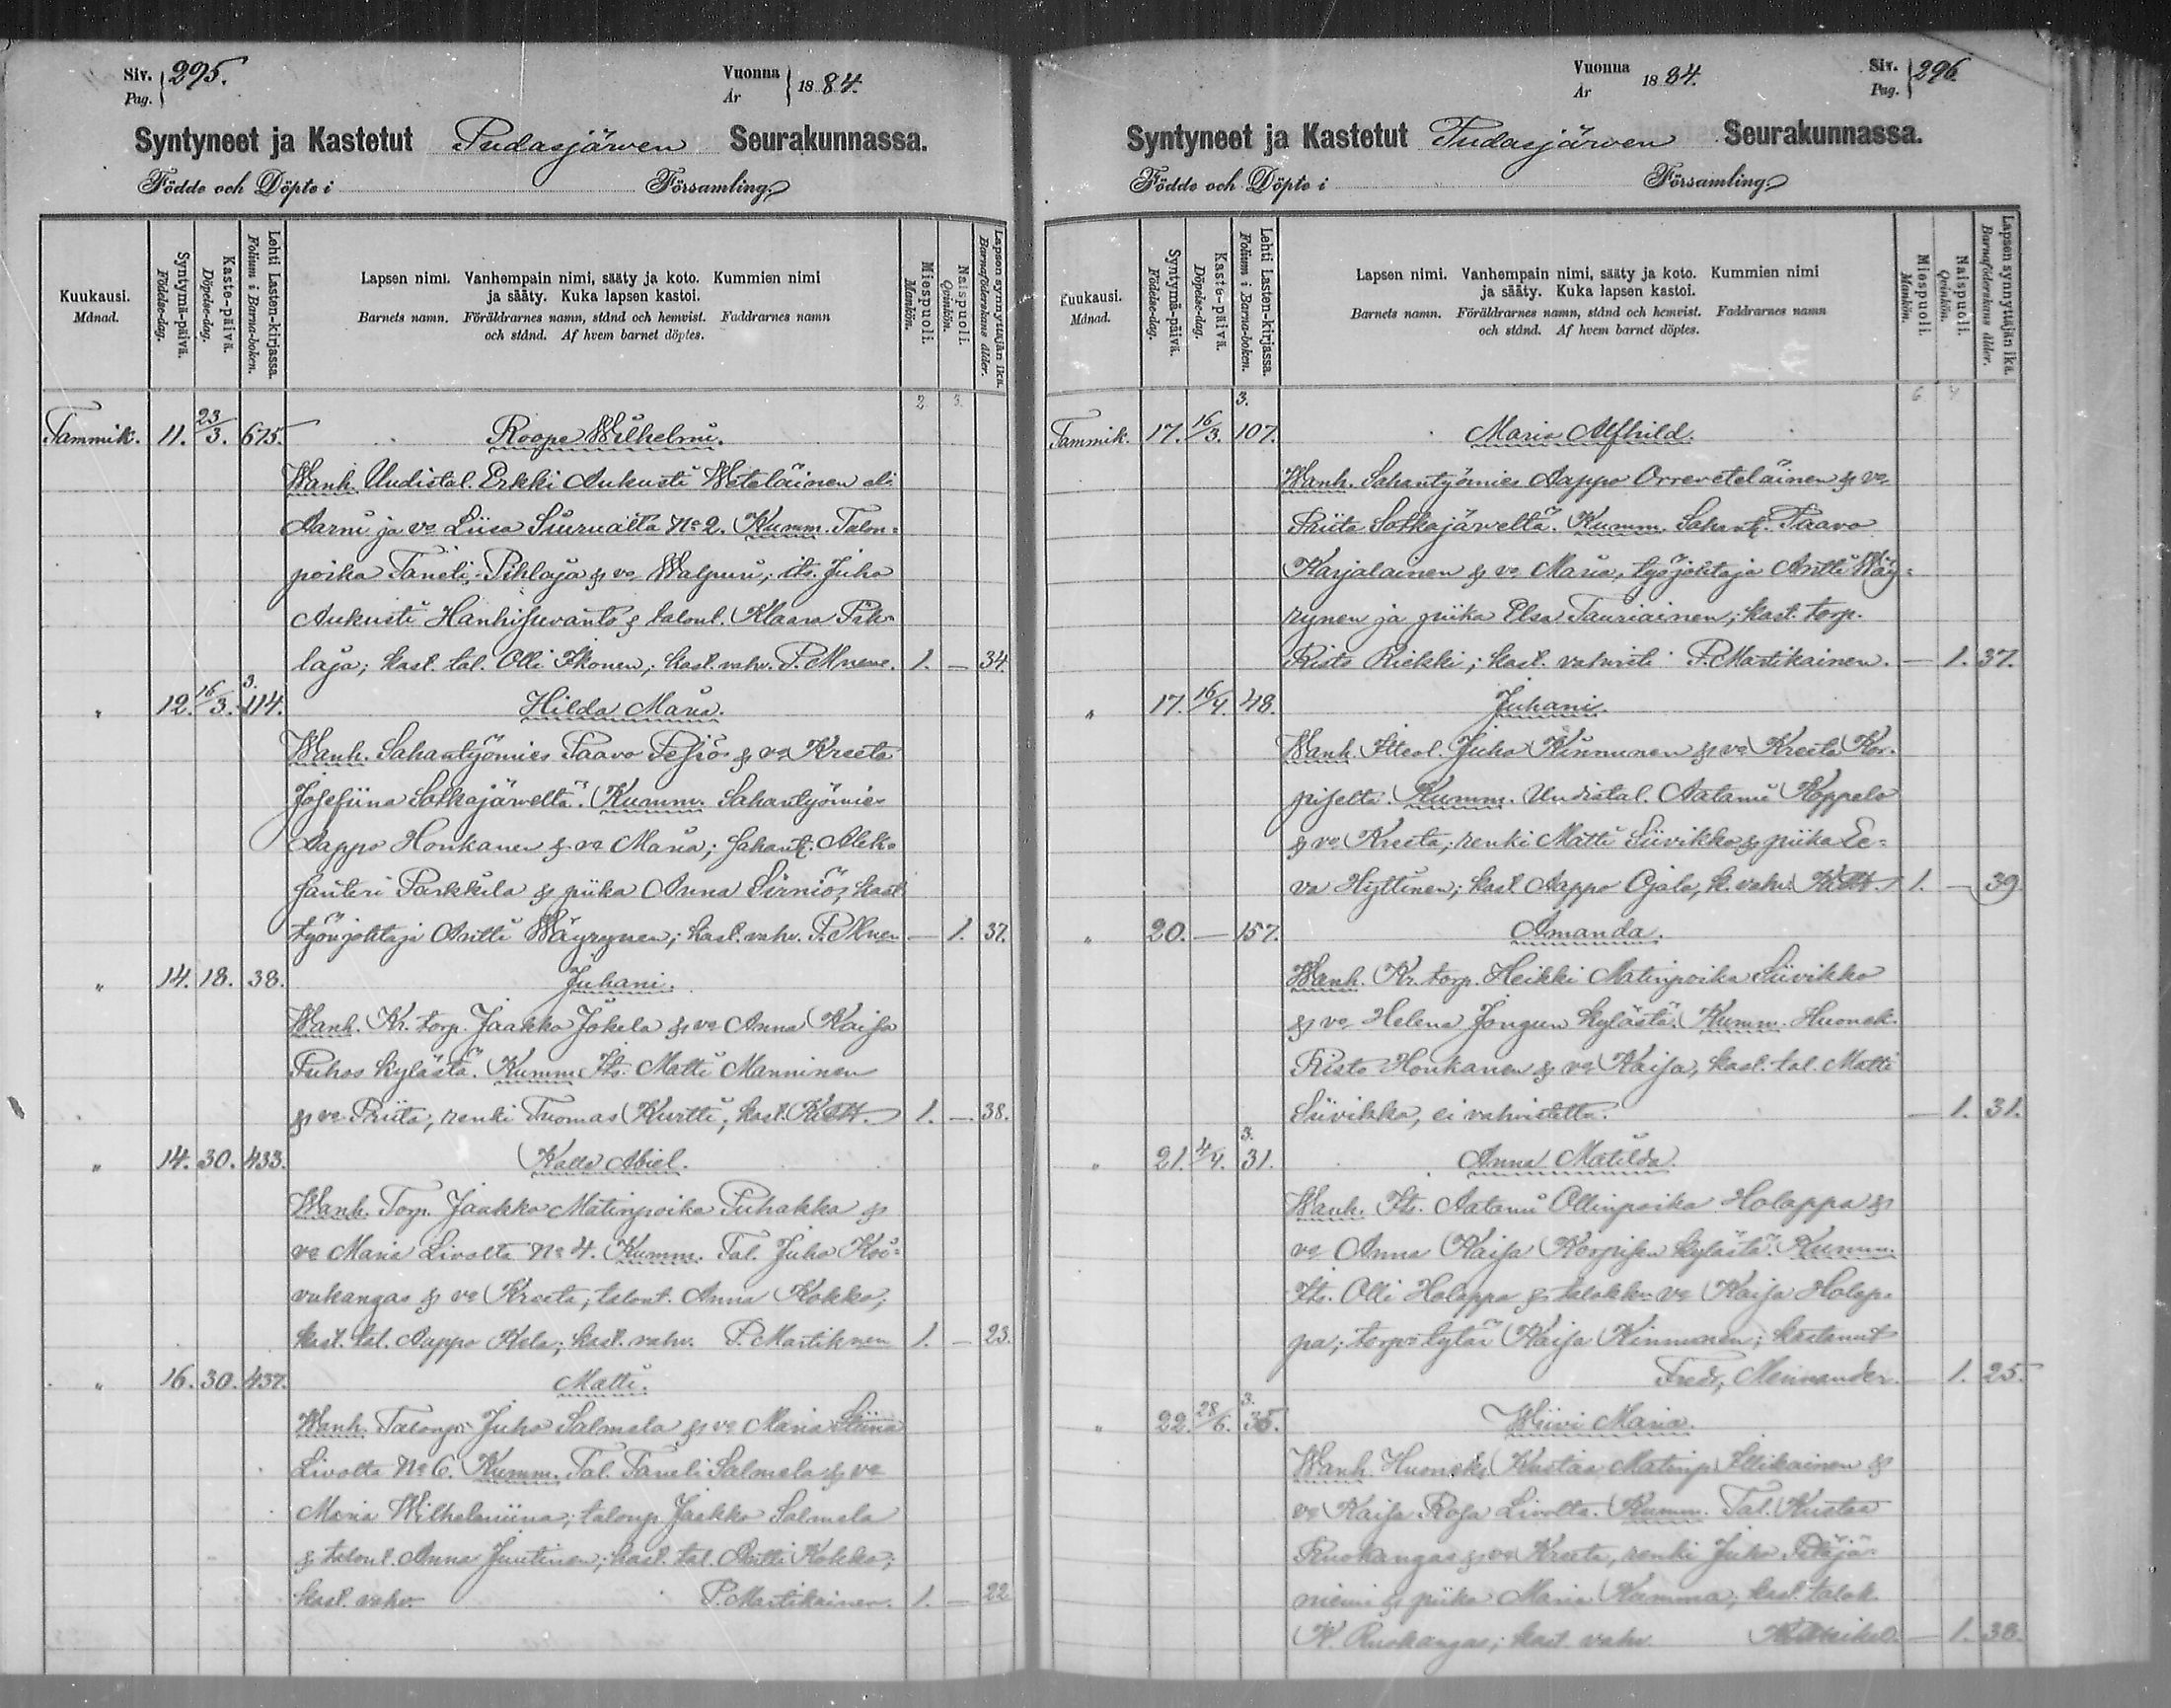 Siv. 295.
Pag.
Vuonna 1884.
År
Syntyneet ja Kastetut Pudasjärven Seurakunnassa.
Födde och Döpte i Församling
Kuukausi.
Månad.
Syntymä-päivä.
Födelse-dag.
Kaste-päivä.
Döpelse-dag.
Lehti Lasten-kirjassa.
Folium i Barna-boken.
Lapsen nimi. Vanhempain nimi, sääty ja koto. Kummien nimi
ja sääty. Kuka lapsen kastoi.
Barnets namn. Föräldrarnes namn, stånd och hemvist. Faddrarnes namn
och stånd. Af hvem barnet döptes.
Miespuoli.
Mankön.
Naispuoli.
Qvinkön.
Lapsen synnyttäjän ikä.
Barnaföderskans ålder.
2 3.
Tammik. 11. 23/3. 675. Roope Wilhelmi.
Wanh. Uudistal. Erkki Aukusti Weteläinen eli
Aarni ja vo Liisa Siuruålta No 2. Kumm. Talon=
poika Taneli Pihlaja & vo Walpuri; its. Juho
Aukusti Hanhisuvanto & talont. Klaara Pih=
laja; kast. tal. Olli Ikonen; kast. vahv. P. Mnene. 1. — 34.
" 12. 16/3. 3. 114. Hilda Maria.
Wanh. Sahantyömies Paavo Pesiö & vo Kreeta
Josefiina Sotkajärveltä. Kumm. Sahantyömies
Aappo Honkanen & vo Maria; sahant. Alek=
santeri Parkkila & piika Anna Sirniö; kast.
työnjohtaja Antti Wäyrynen; kast. vahv. P. Mnen — 1. 37.
" 14. 18. 38. Juhani.
Wanh. Kr. torp. Jaakko Jokela & vo Anna Kaisa
Puhos kylästä. Kumm. Its. Matti Manninen
& vo Priita; renki Tuomas Kurtti; kast. 1. — 38.
" 14. 30. 433. Kalle Abiel.
Wanh. Torp. Jaakko Matinpoika Puhakka &
vo Maria Livolta No 4. Kumm. Tal. Juho Koi=
vukangas & vo Kreeta; talont. Anna Kokko;
kast. tal. Aappo Kela; kast. vahv. P. Martiknen 1. — 23.
" 16. 30. 437. Matti.
Wanh. Talonp. Juho Salmela & vo Maria Stiina
Livolta No 6. Kumm. Tal. Taneli Salmela & vo
Maria Wilhelmiina; talonp. Jaakko Salmela
& talont. Anna Juutinen; kast. tal. Antti Kokko;
kast. vahv. P. Martikainen. 1. — 22
Vuonna 1884.
År
Siv. 296
Pag.
Syntyneet ja Kastetut Pudasjärven Seurakunnassa.
Födde och Döpte i Församling
Kuukausi.
Månad.
Syntymä-päivä.
Födelse-dag.
Kaste-päivä.
Döpelse-dag.
Lehti Lasten-kirjassa.
Folium i Barna-boken.
Lapsen nimi. Vanhempain nimi, sääty ja koto. Kummien nimi
ja sääty. Kuka lapsen kastoi.
Barnets namn. Föräldrarnes namn, stånd och hemvist. Faddrarnes namn
och stånd. Af hvem barnet döptes.
Miespuoli.
Mankön.
Naispuoli.
Qvinkön.
Lapsen synnyttäjän ikä.
Barnaföderskans ålder.
6 4
Tammik. 17. 16/3. 3. 107. Maria Alfhild.
Wanh. Sahantyömies Aappo Orreveteläinen & vo
Priita Sotkajärveltä. Kumm. Sahant. Paavo
Karjalainen & vo Maria, työjohtaja Antti Wäy=
rynen ja piika Elsa Tauriainen; kast. torp.
Risto Riekki; kast. vahvisti P. Martikainen. — 1. 37.
" 17. 16/4. 48. Juhani.
Wanh. Itteol. Juho Kinnunen & vo Kreeta Kor=
piselta. Kumm. Uudistal. Aatami Koppelo
& vo Kreeta; renki Matti Siivikko & piika Ee=
va Hyttinen; kast. Aappo Ojala, k. vahv. 1. — 39
" 20. — 157. Amanda.
Wanh. Kr. torp. Heikki Matinpoika Siivikko
& vo Helena Jongun kylästä. Kumm. Huonek.
Risto Honkanen & vo Kaisa, kast. tal. Matti
Siivikko, ei vahvistettu. — 1. 31.
" 21. 4/4. 3. 31. Anna Matilda.
Wanh. Its. Aatami Ollinpoika Holappa &
vo Anna Kaisa Korpisen kylästä. Kumm.
Its. Olli Holappa & talokk. vo Kaisa Holap=
pa; torp. tytär Kaisa Kinnunen; kastanut
Fredr. Meinander. — 1. 25.
" 22. 28/6. 3. 35. Wiivi Maria.
Wanh. Huonek. Kustaa Matinp. Illikainen &
vo Kaisa Rosa Livolta. Kumm. Tal. Kustaa
Ruokangas & vo Kreeta, renki Juho Petäjä=
niemi & piika Maria Kumma; kast. talok.
K. Ruokangas; kast. vahv. — 1. 38.